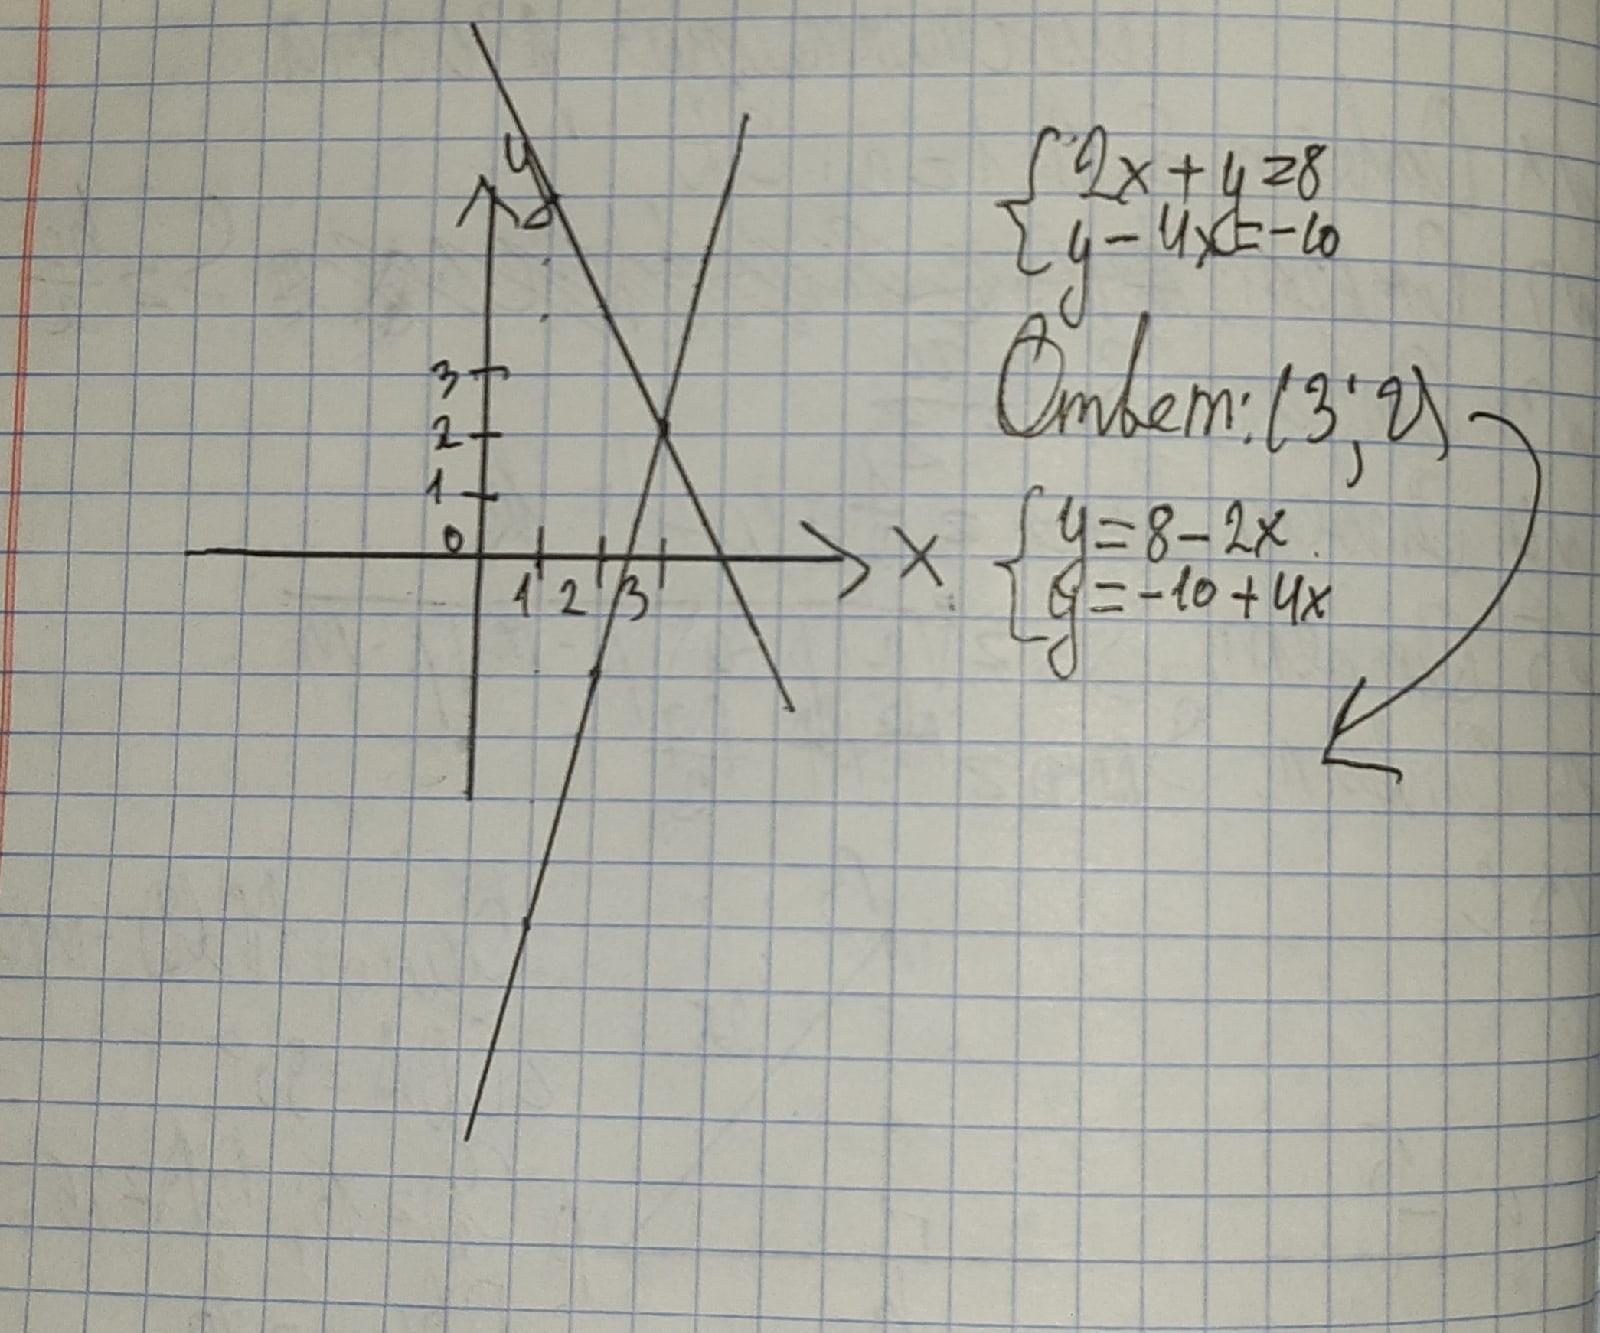 y
3
2
1
0
1 2 3
X
{ 2x + y = 8
y - 4x = -10
Ответ: (3; 2)
{ y = 8 - 2x
y = -10 + 4x